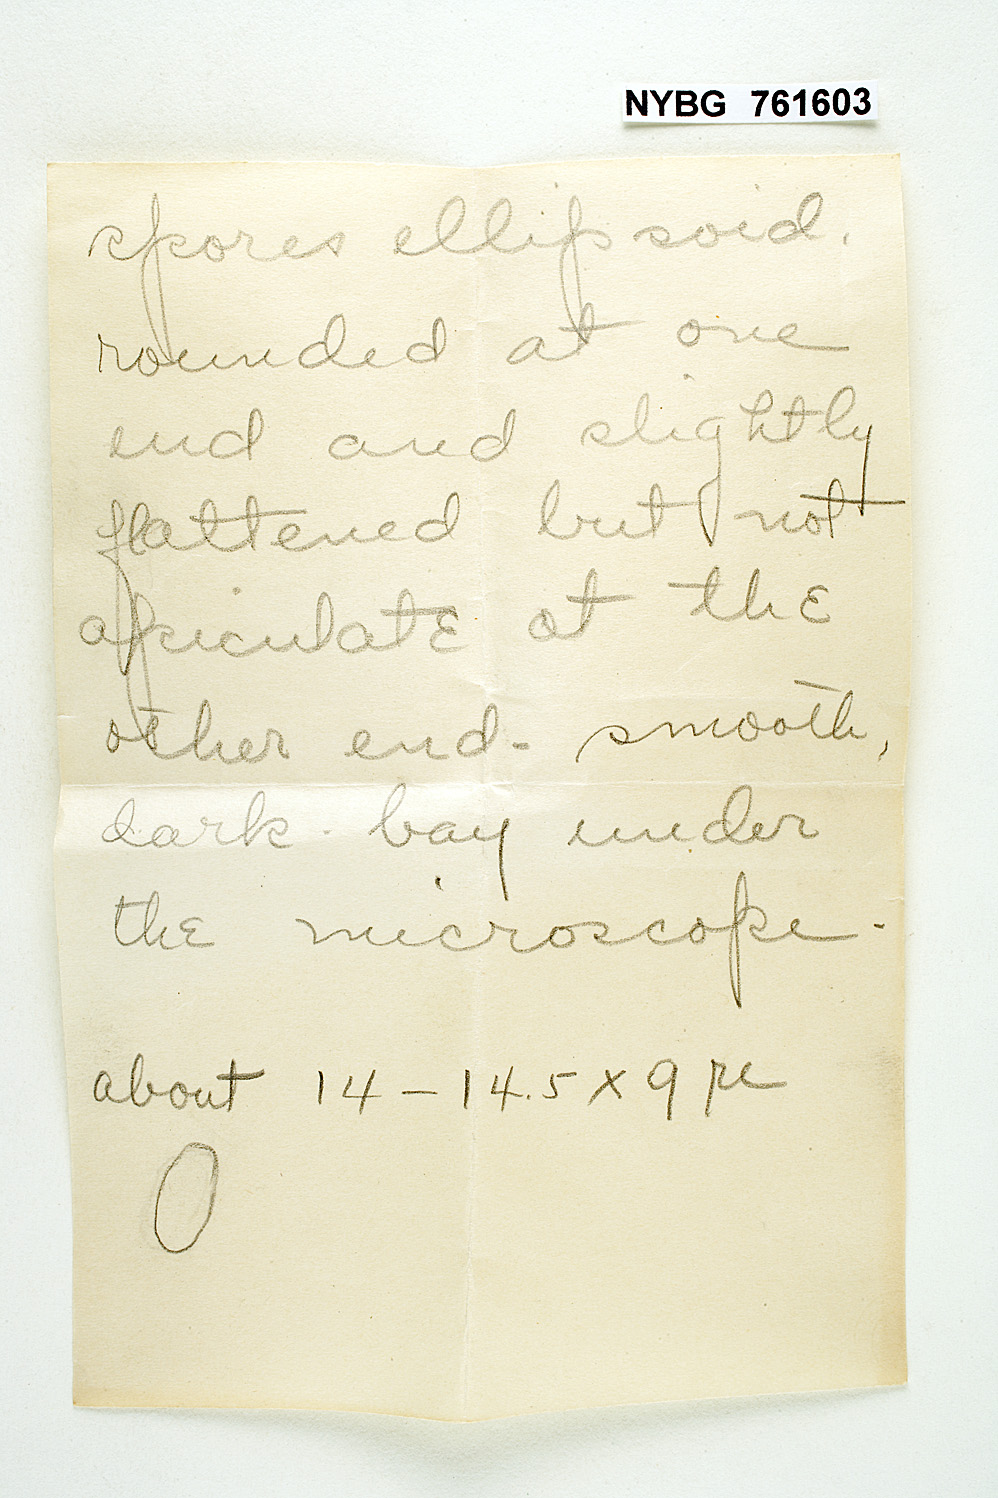 NYBG 761603
spores ellipsoid.
rounded at one
end and slightly
flattened but not
apiculate at the
other end - smooth,
dark - bay under
the microscope -
about 14 - 14.5 x 9 µ